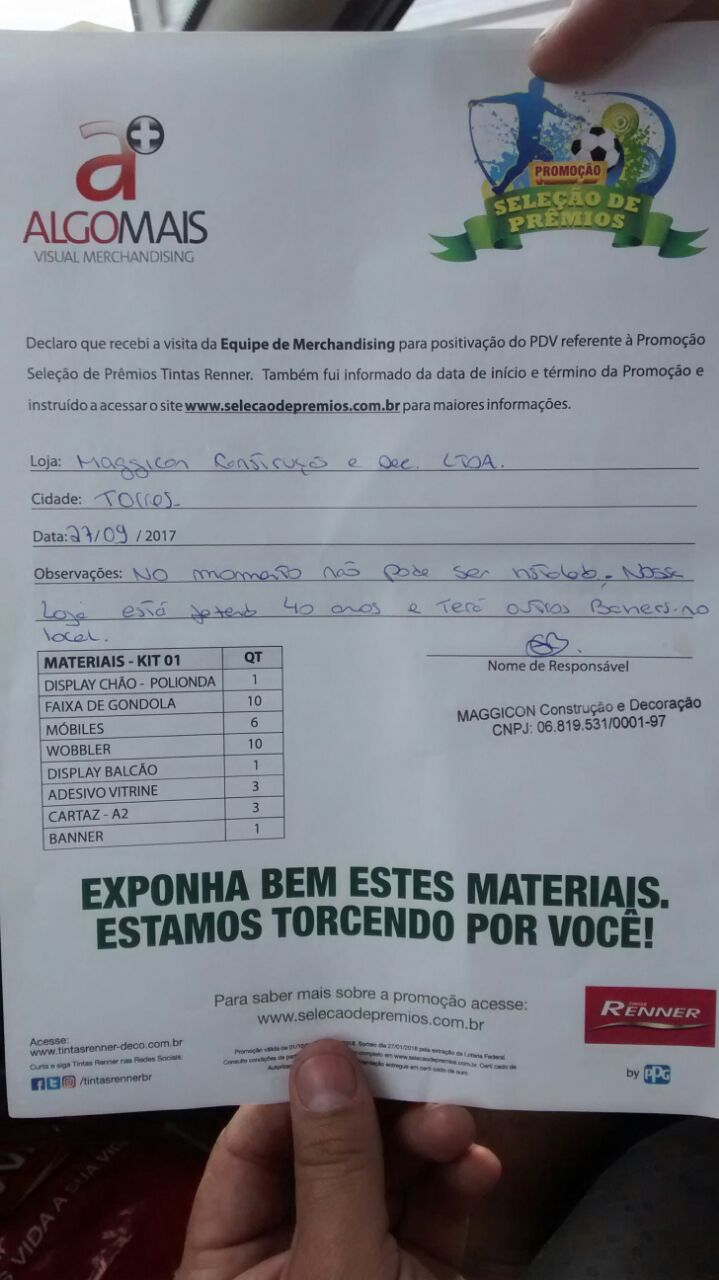 a+
ALGOMAIS
VISUAL MERCHANDISING
PROMOÇÃO
SELEÇÃO DE
PRÊMIOS
Declaro que recebi a visita da Equipe de Merchandising para positivação do PDV referente à Promoção
Seleção de Prêmios Tintas Renner. Também fui informado da data de início e término da Promoção e
instruído a acessar o site www.selecaodepremios.com.br para maiores informações.
Loja: Maggicon Construções e Dec. LTDA.
Cidade: Torres
Data: 27/09 / 2017
Observações: No momento não pode ser. Nossa
Loja está 40 anos e Terá outros Baners no
local.
Nome de Responsável
MATERIAIS - KIT 01 QT
DISPLAY CHÃO - POLIONDA 1
FAIXA DE GONDOLA 10
MÓBILES 6
WOBBLER 10
DISPLAY BALCÃO 1
ADESIVO VITRINE 3
CARTAZ - A2 3
BANNER 1
MAGGICON Construção e Decoração
CNPJ: 06.819.531/0001-97
EXPONHA BEM ESTES MATERIAIS.
ESTAMOS TORCENDO POR VOCÊ!
Para saber mais sobre a promoção acesse:
www.selecaodepremios.com.br
TINTAS
RENNER
by PPG
Acesse:
www.tintasrenner-deco.com.br
Curta e siga Tintas Renner nas Redes Sociais:
/tintasrennerbr
Promoção válida de 2018. Sorteio dia 27/01/2018 pela extração da Loteria Federal.
Consulte condições de completo em www.selecaodepremios.com.br.
VIDA A SUA VID